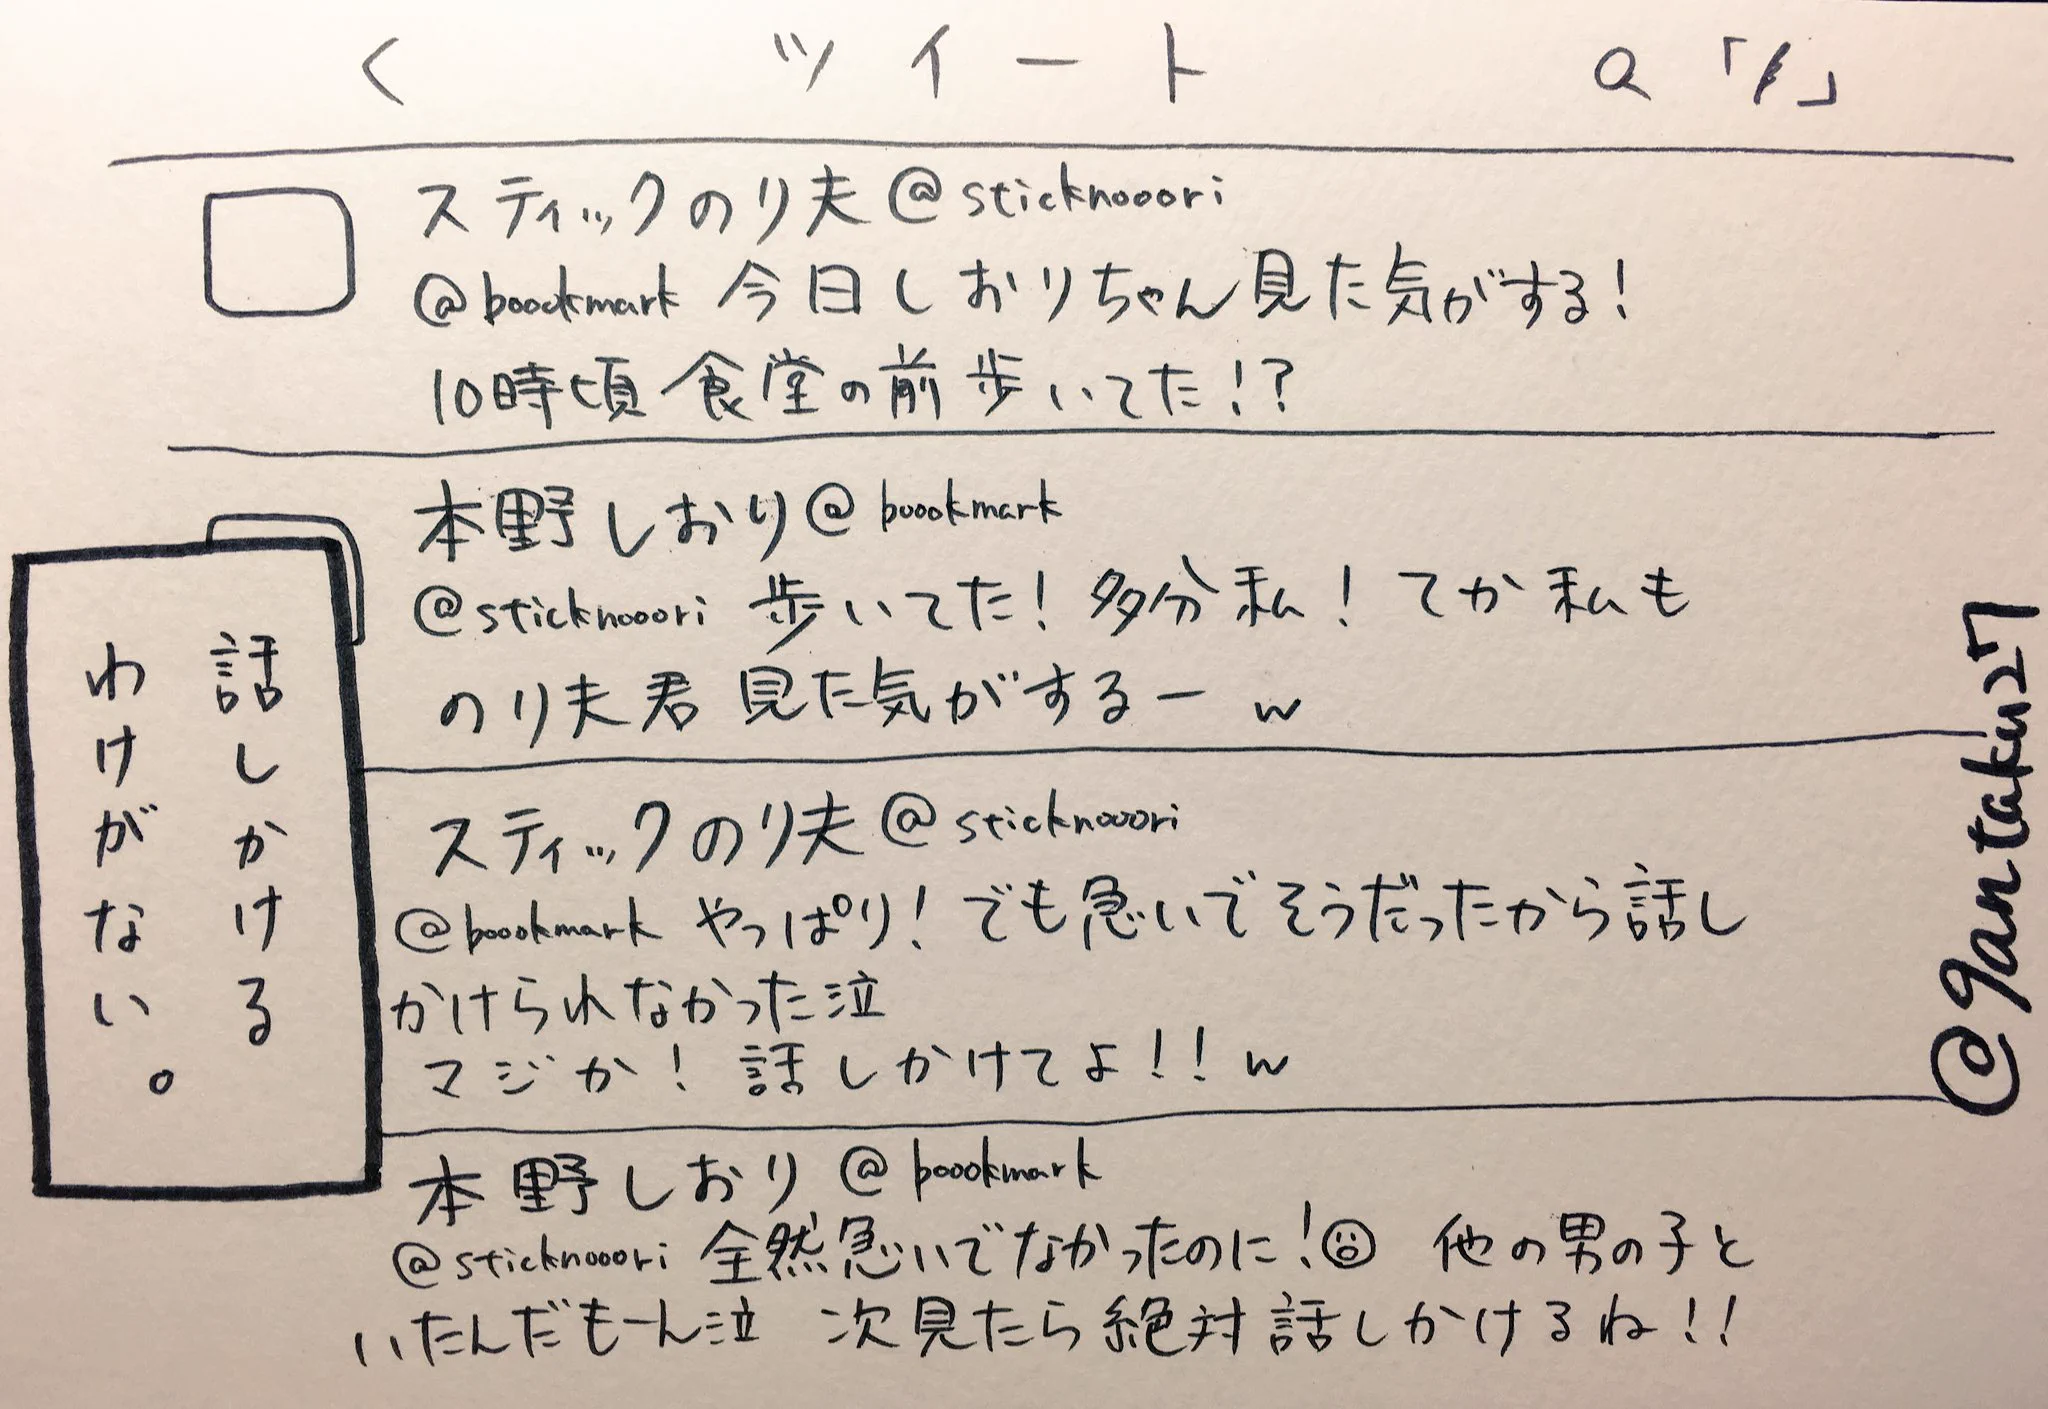 ツイート
スティックのり夫@sticknooori
@boookmark 今日しおりちゃん見た気がする!
10時頃食堂の前歩いてた!?
本野しおり@boookmark
@sticknooori 歩いてた!多分私!てか私も
のり夫君見た気がするーw
スティックのり夫@sticknooori
@boookmark やっぱり!でも急いでそうだったから話し
かけられなかった泣
マジか!話しかけてよ!!w
本野しおり@boookmark
@sticknooori 全然急いでなかったのに! 他の男の子と
いたんだもーん泣 次見たら絶対話しかけるね!!
話しかける
わけがない。
@gantaku27